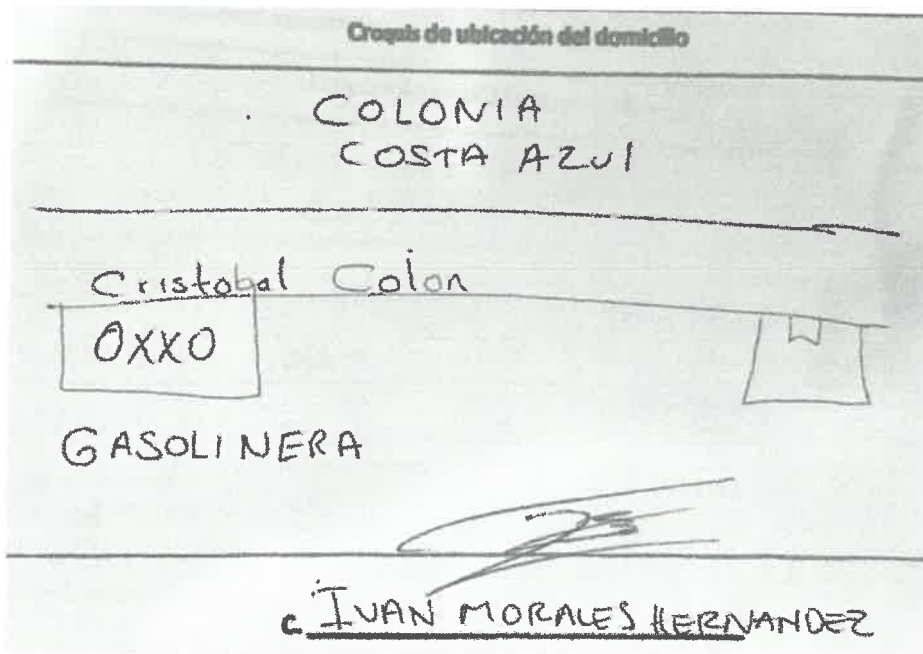 Croquis de ubicación del domicilio
COLONIA
COSTA AZUl
Cristobal Colon
OXXO
GASOLINERA
c. IVAN MORALES HERNANDEZ